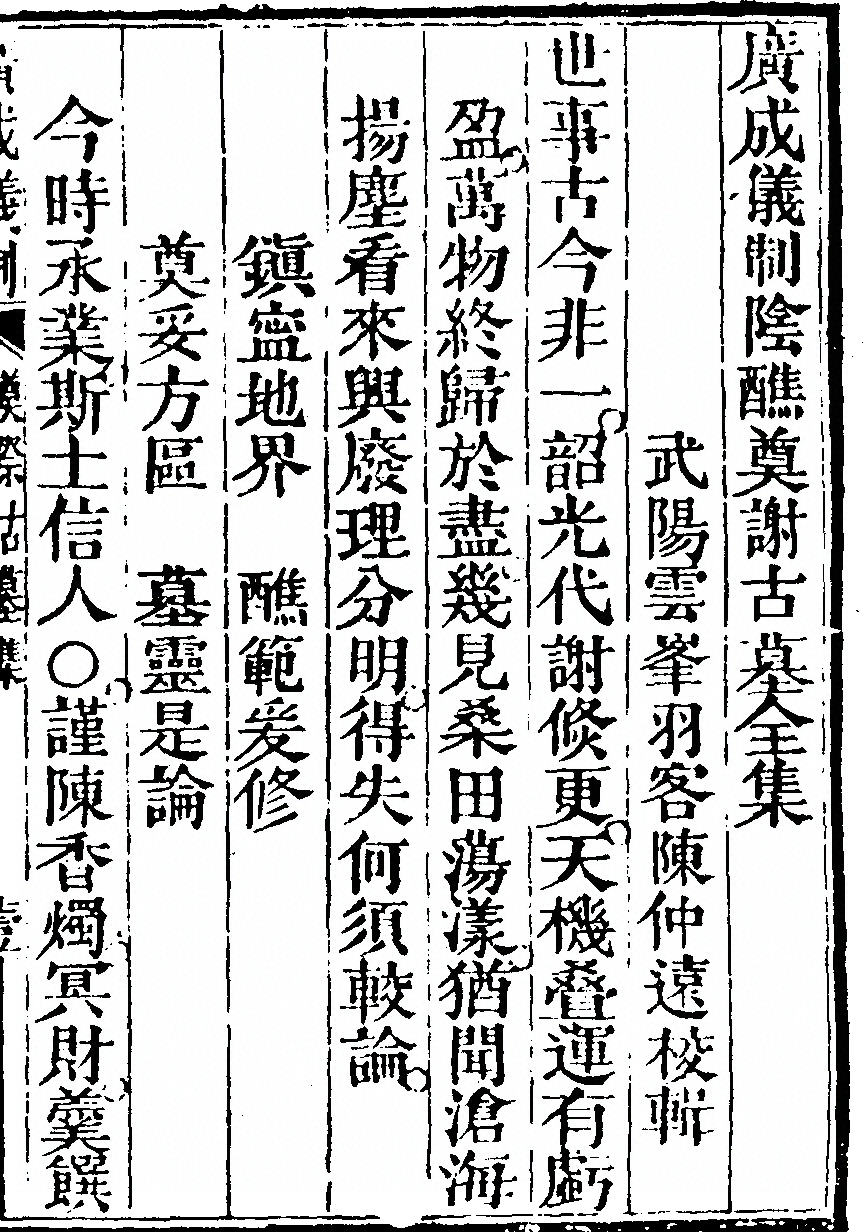 廣成儀制陰醮奠謝古墓全集
武陽雲峯羽客陳仲遠校輯
世事古今非一韶光代謝倐更天機叠運有虧
盈萬物終歸於盡幾見桑田蕩漾猶聞滄海
揚塵看來興廢理分明得失何須較論
鎭寍地界 醮範爰修
奠妥方區 墓靈是論
今時承業斯士信人○謹陳香燭冥財羹饌